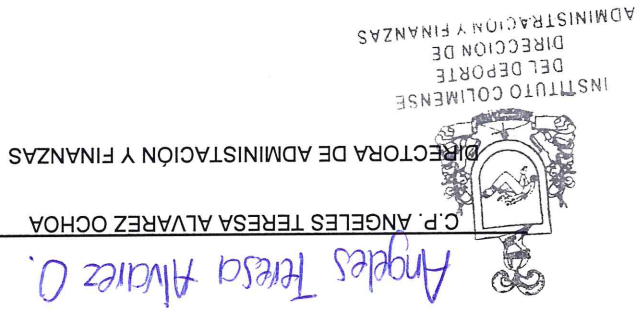 Angeles Teresa Alvarez O.
C.P. ANGELES TERESA ALVAREZ OCHOA
DIRECTORA DE ADMINISTACIÓN Y FINANZAS
INSTITUTO COLIMENSE
DEL DEPORTE
DIRECCION DE
ADMINISTRACIÓN Y FINANZAS